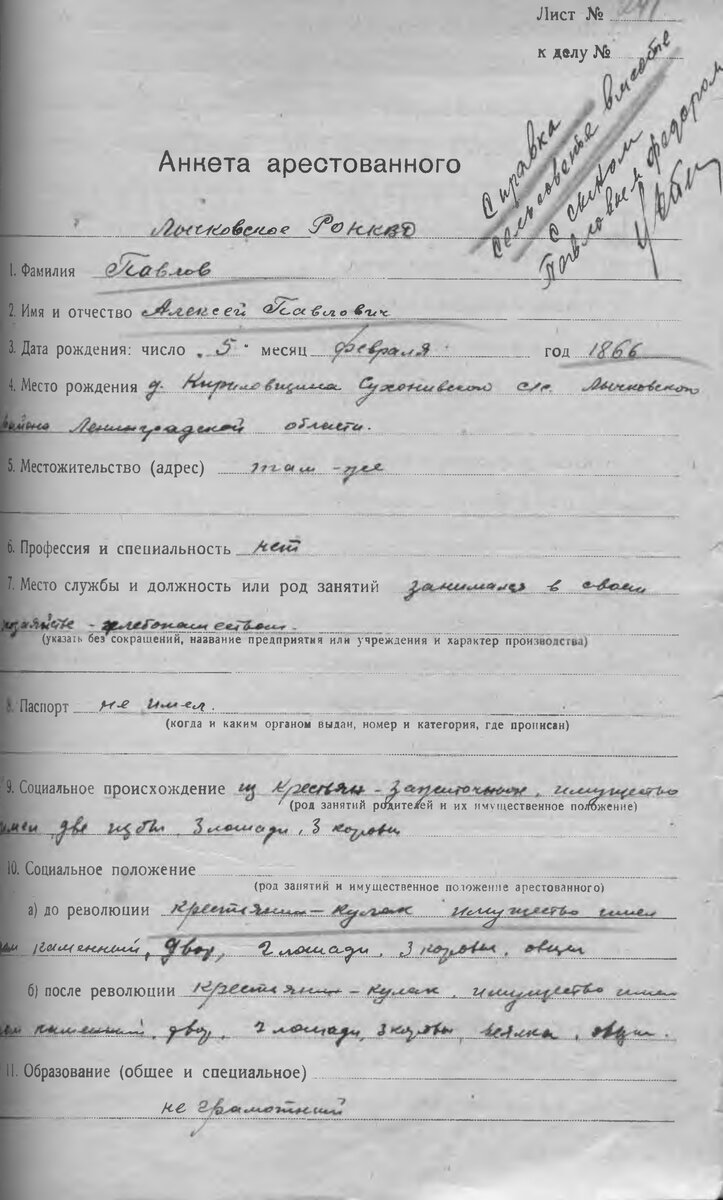 Лист № 241
к делу №
Справка
сельсовета вместе
с сыном
Павловым Федором
Анкета арестованного
Лычковское РОНКВД
1. Фамилия Павлов
2. Имя и отчество Алексей Павлович
3. Дата рождения: число „5" месяц февраля год 1866
4. Место рождения д. Кириловщина Сухонивского с/с. Лычковского
района Ленинградской области.
5. Местожительство (адрес) там-же
6. Профессия и специальность нет
7. Место службы и должность или род занятий занимался в своем
хозяйстве - хлебопашеством.
(указать без сокращений, название предприятия или учреждения и характер производства)
8. Паспорт не имел
(когда и каким органом выдан, номер и категория, где прописан)
9. Социальное происхождение из крестьян - зажиточных, имущество
(род занятий родителей и их имущественное положение)
имел две избы, 3 лошади, 3 коровы
10. Социальное положение
(род занятий и имущественное положение арестованного)
а) до революции крестянин - кулак имущество имел
дом каменный, двор, 2 лошади, 3 коровы, овцы
б) после революции крестянин - кулак, имущество имел
дом каменный, двор, 2 лошади, 3 коровы, веялка, овцы.
11. Образование (общее и специальное)
не грамотный